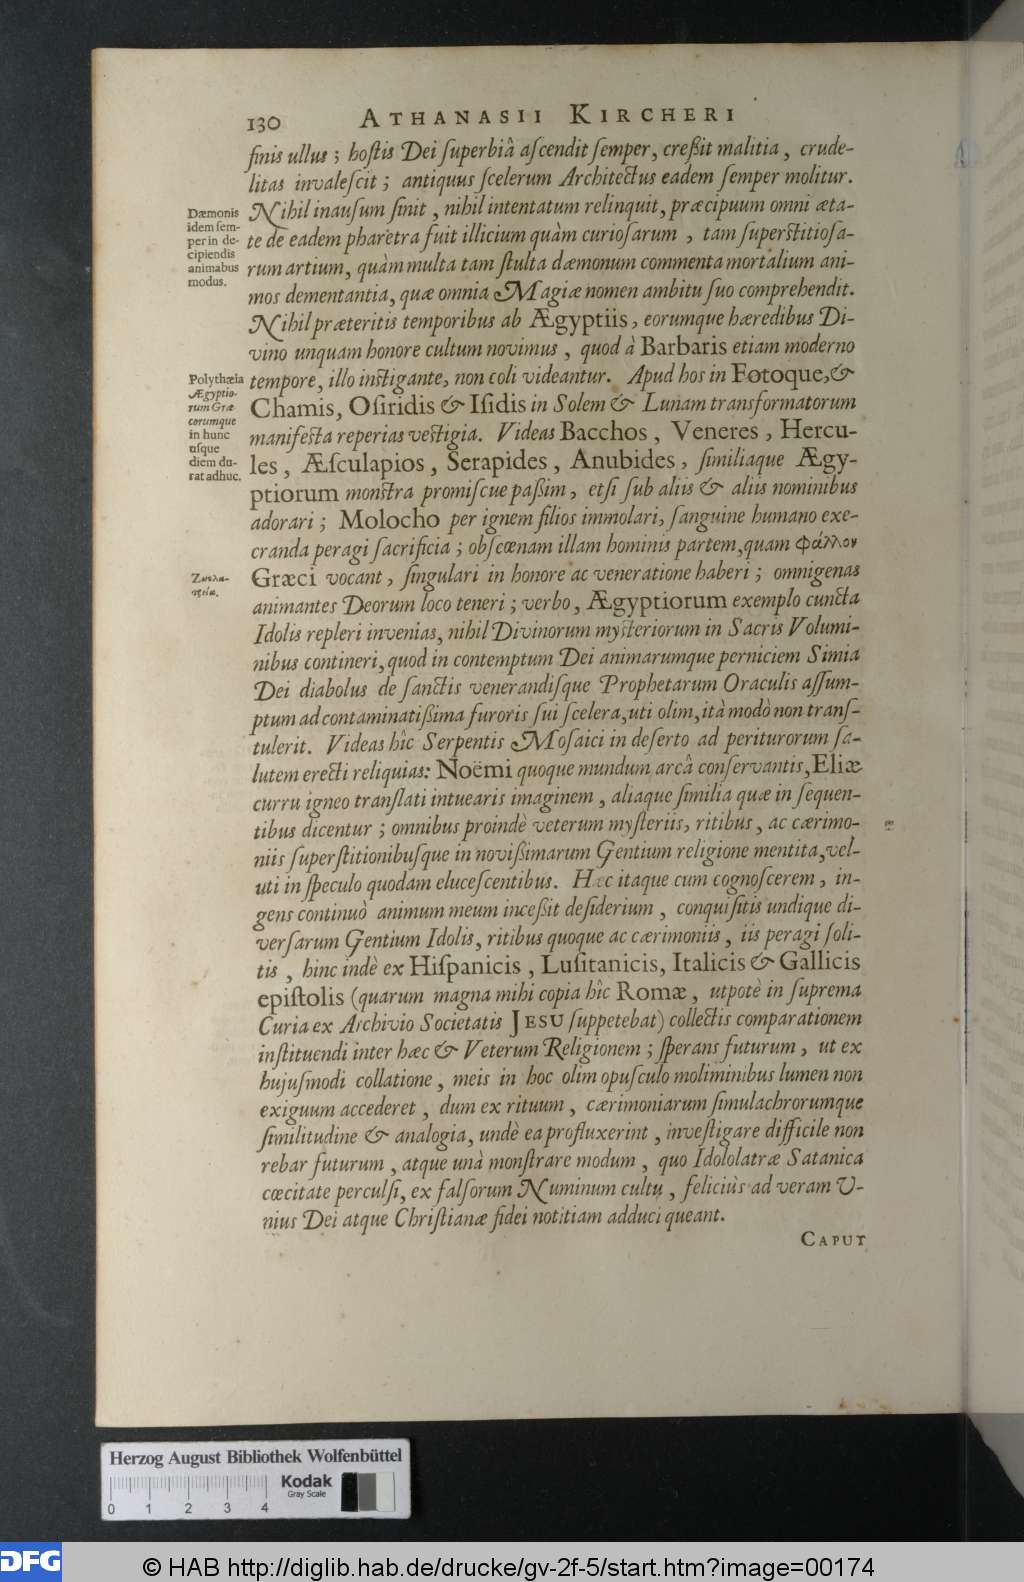 130 ATHANASII KIRCHERI
finis ullus ; hoſtis Dei ſuperbiâ aſcendit ſemper, creßit malitia, crude-
litas invaleſcit ; antiquus ſcelerum Architectus eadem ſemper molitur.
Nihil inauſum ſinit, nihil intentatum relinquit, præcipuum omni æta-
te de eadem pharetra fuit illicium quàm curioſarum, tam ſuperſtitioſa-
rum artium, quàm multa tam ſtulta dæmonum commenta mortalium ani-
mos dementantia, quæ omnia Magiæ nomen ambitu ſuo comprehendit.
Nihil præteritis temporibus ab Ægyptiis, eorumque hæredibus Di-
vino unquam honore cultum novimus, quod à Barbaris etiam moderno
tempore, illo inſtigante, non coli videantur. Apud hos in Fotoque, &
Chamis, Oſiridis & Iſidis in Solem & Lunam transformatorum
manifeſta reperias veſtigia. Videas Bacchos, Veneres, Hercu-
les, Æſculapios, Serapides, Anubides, ſimiliaque Ægy-
ptiorum monſtra promiſcue paßim, etſi ſub aliis & aliis nominibus
adorari ; Molocho per ignem filios immolari, ſanguine humano exe-
cranda peragi ſacrificia ; obſcœnam illam hominis partem, quam Φάλλον
Græci vocant, ſingulari in honore ac veneratione haberi ; omnigenas
animantes Deorum loco teneri ; verbo, Ægyptiorum exemplo cuncta
Idolis repleri invenias, nihil Divinorum myſteriorum in Sacris Volumi-
nibus contineri, quod in contemptum Dei animarumque perniciem Simia
Dei diabolus de ſanctis venerandiſque Prophetarum Oraculis aſſum-
ptum ad contaminatißima furoris ſui ſcelera, uti olim, ità modò non tranſ-
tulerit. Videas hîc Serpentis Moſaici in deſerto ad periturorum ſa-
lutem erecti reliquias: Noëmi quoque mundum arcâ conſervantis, Eliæ
curru igneo tranſlati intuearis imaginem, aliaque ſimilia quæ in ſequen-
tibus dicentur ; omnibus proindè veterum myſteriis, ritibus, ac cærimo-
niis ſuperſtitionibuſque in novißimarum Gentium religione mentita, vel-
uti in ſpeculo quodam eluceſcentibus. Hæc itaque cum cognoſcerem, in-
gens continuò animum meum inceßit deſiderium, conquiſitis undique di-
verſarum Gentium Idolis, ritibus quoque ac cærimoniis, iis peragi ſoli-
tis, hinc indè ex Hiſpanicis, Luſitanicis, Italicis & Gallicis
epiſtolis (quarum magna mihi copia hîc Romæ, utpotè in ſuprema
Curia ex Archivio Societatis JESU ſuppetebat) collectis comparationem
inſtituendi inter hæc & Veterum Religionem ; ſperans futurum, ut ex
hujuſmodi collatione, meis in hoc olim opuſculo moliminibus lumen non
exiguum accederet, dum ex rituum, cærimoniarum ſimulachrorumque
ſimilitudine & analogia, undè ea profluxerint, inveſtigare difficile non
rebar futurum, atque unà monſtrare modum, quo Idololatræ Satanica
cœcitate perculſi, ex falſorum Numinum cultu, feliciùs ad veram U-
nius Dei atque Chriſtianæ fidei notitiam adduci queant.
CAPUT
Dæmonis
idem ſem-
per in de-
cipiendis
animabus
modus.
Polythæia
Ægyptio-
rum Græ
corumque
in hunc
uſque
diem du-
rat adhuc.
Ζωολα-
τρεία.
Herzog August Bibliothek Wolfenbüttel
Kodak
Gray Scale
0 1 2 3 4
DFG
© HAB http://diglib.hab.de/drucke/gv-2f-5/start.htm?image=00174